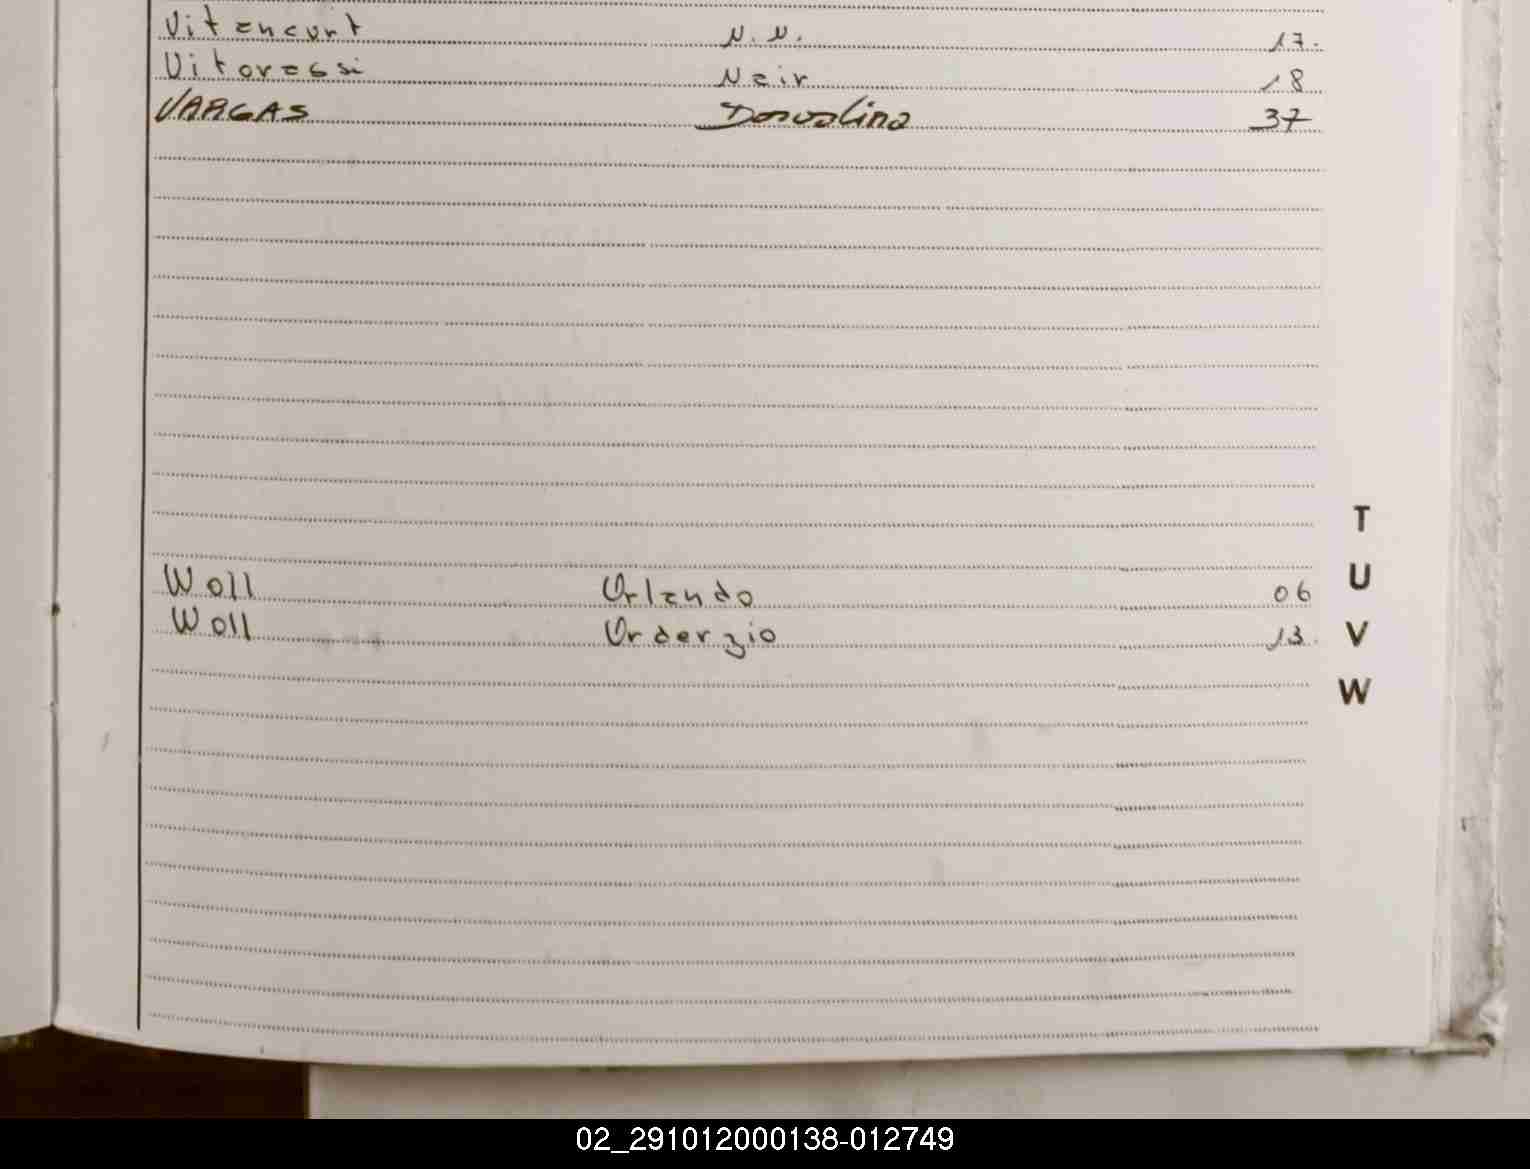 Vitencurt N.N. 17.
Vitoressi Nair 18
VARGAS Dorvalina 37
Woll Orlando 06
Woll Orderzio 13.
T
U
V
W
02_291012000138-012749